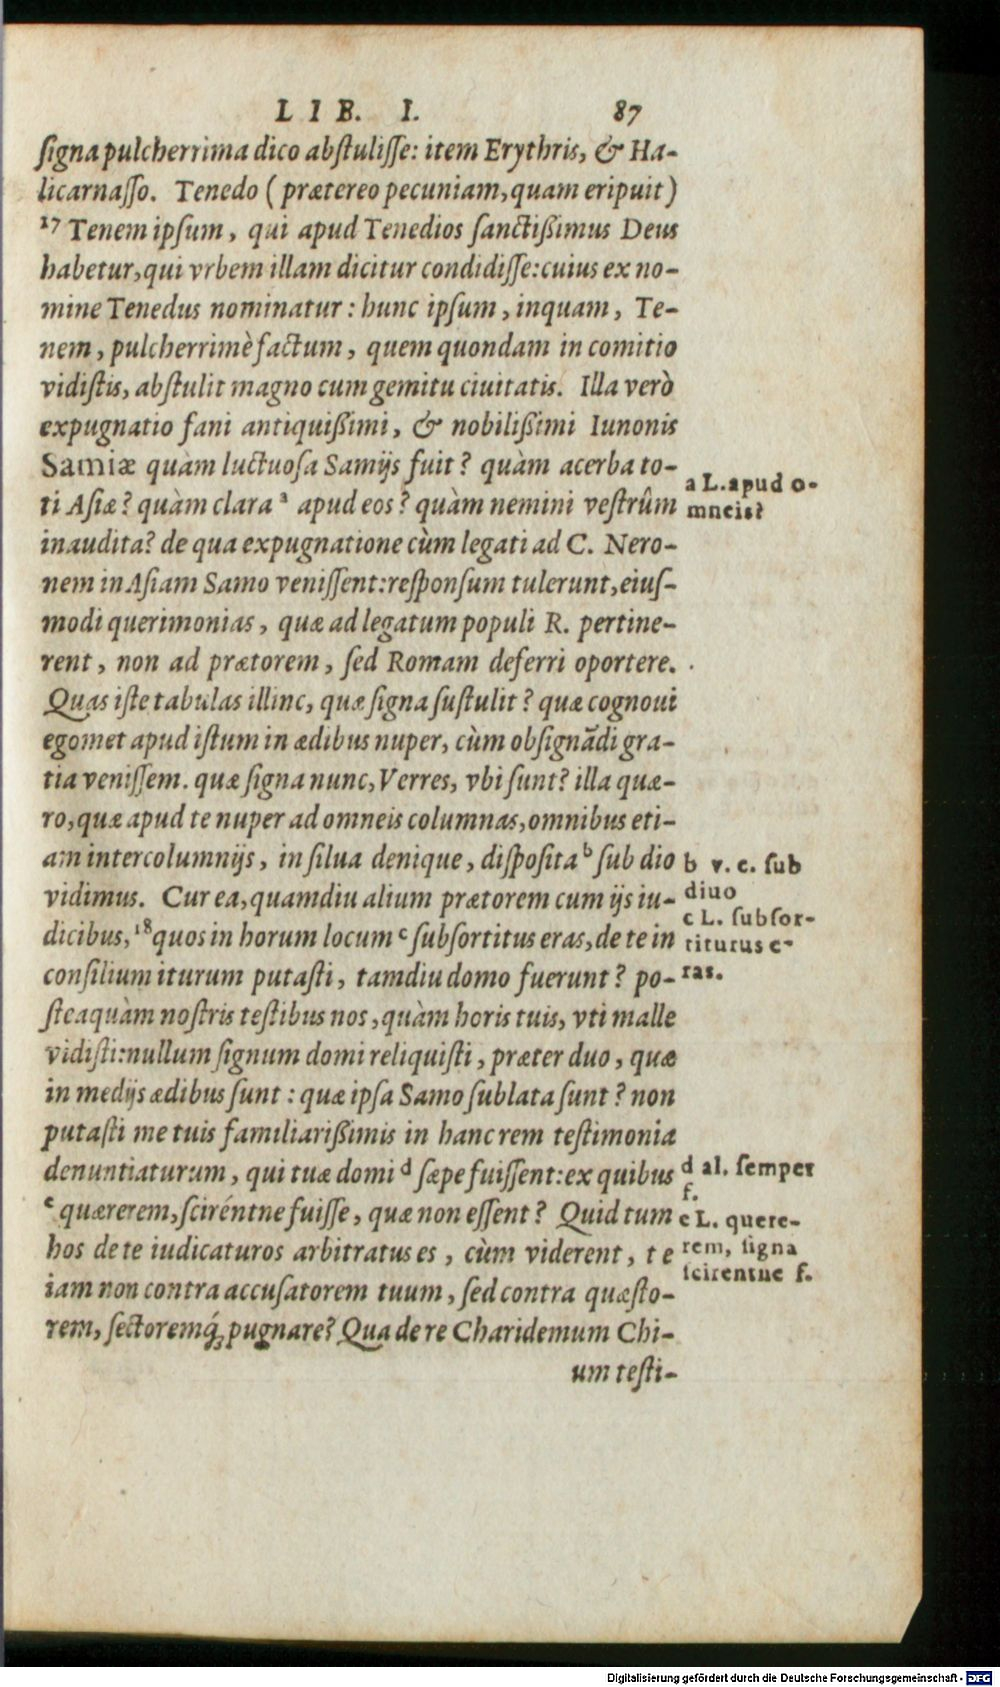 LIB. I. 87
signa pulcherrima dico abstulisse: item Erythris, & Ha-
licarnasso. Tenedo (prætereo pecuniam, quam eripuit)
17 Tenem ipsum, qui apud Tenedios sanctißimus Deus
habetur, qui vrbem illam dicitur condidisse: cuius ex no-
mine Tenedus nominatur: hunc ipsum, inquam, Te-
nem, pulcherrimè factum, quem quondam in comitio
vidistis, abstulit magno cum gemitu ciuitatis. Illa verò
expugnatio fani antiquißimi, & nobilißimi Iunonis
Samiæ quàm luctuosa Samijs fuit? quàm acerba to-
ti Asiæ? quàm clara a apud eos? quàm nemini vestrûm
inaudita? de qua expugnatione cùm legati ad C. Nero-
nem in Asiam Samo venissent: responsum tulerunt, eius-
modi querimonias, quæ ad legatum populi R. pertine-
rent, non ad prætorem, sed Romam deferri oportere.
Quas iste tabulas illinc, quæ signa sustulit? quæ cognoui
egomet apud istum in ædibus nuper, cùm obsignãdi gra-
tia venissem. quæ signa nunc, Verres, vbi sunt? illa quæ-
ro, quæ apud te nuper ad omneis columnas, omnibus eti-
am intercolumnijs, in silua denique, disposita b sub dio
vidimus. Cur ea, quamdiu alium prætorem cum ijs iu-
dicibus, 18 quos in horum locum c subsortitus eras, de te in
consilium iturum putasti, tamdiu domo fuerunt? po-
steaquàm nostris testibus nos, quàm horis tuis, vti malle
vidisti: nullum signum domi reliquisti, præter duo, quæ
in medijs ædibus sunt: quæ ipsa Samo sublata sunt? non
putasti me tuis familiarißimis in hanc rem testimonia
denuntiaturum, qui tuæ domi d sæpe fuissent: ex quibus
e quærerem, sciréntne fuisse, quæ non essent? Quid tum
hos de te iudicaturos arbitratus es, cùm viderent, te
iam non contra accusatorem tuum, sed contra quæsto-
rem, sectoremq́; pugnare? Qua de re Charidemum Chi-
um testi-
a L. apud o-
mneis?
b v. c. sub
diuo
c L. subsor-
titurus e-
ras.
d al. semper
f.
e L. quere-
rem, signa
scirentne f.
Digitalisierung gefördert durch die Deutsche Forschungsgemeinschaft - DFG